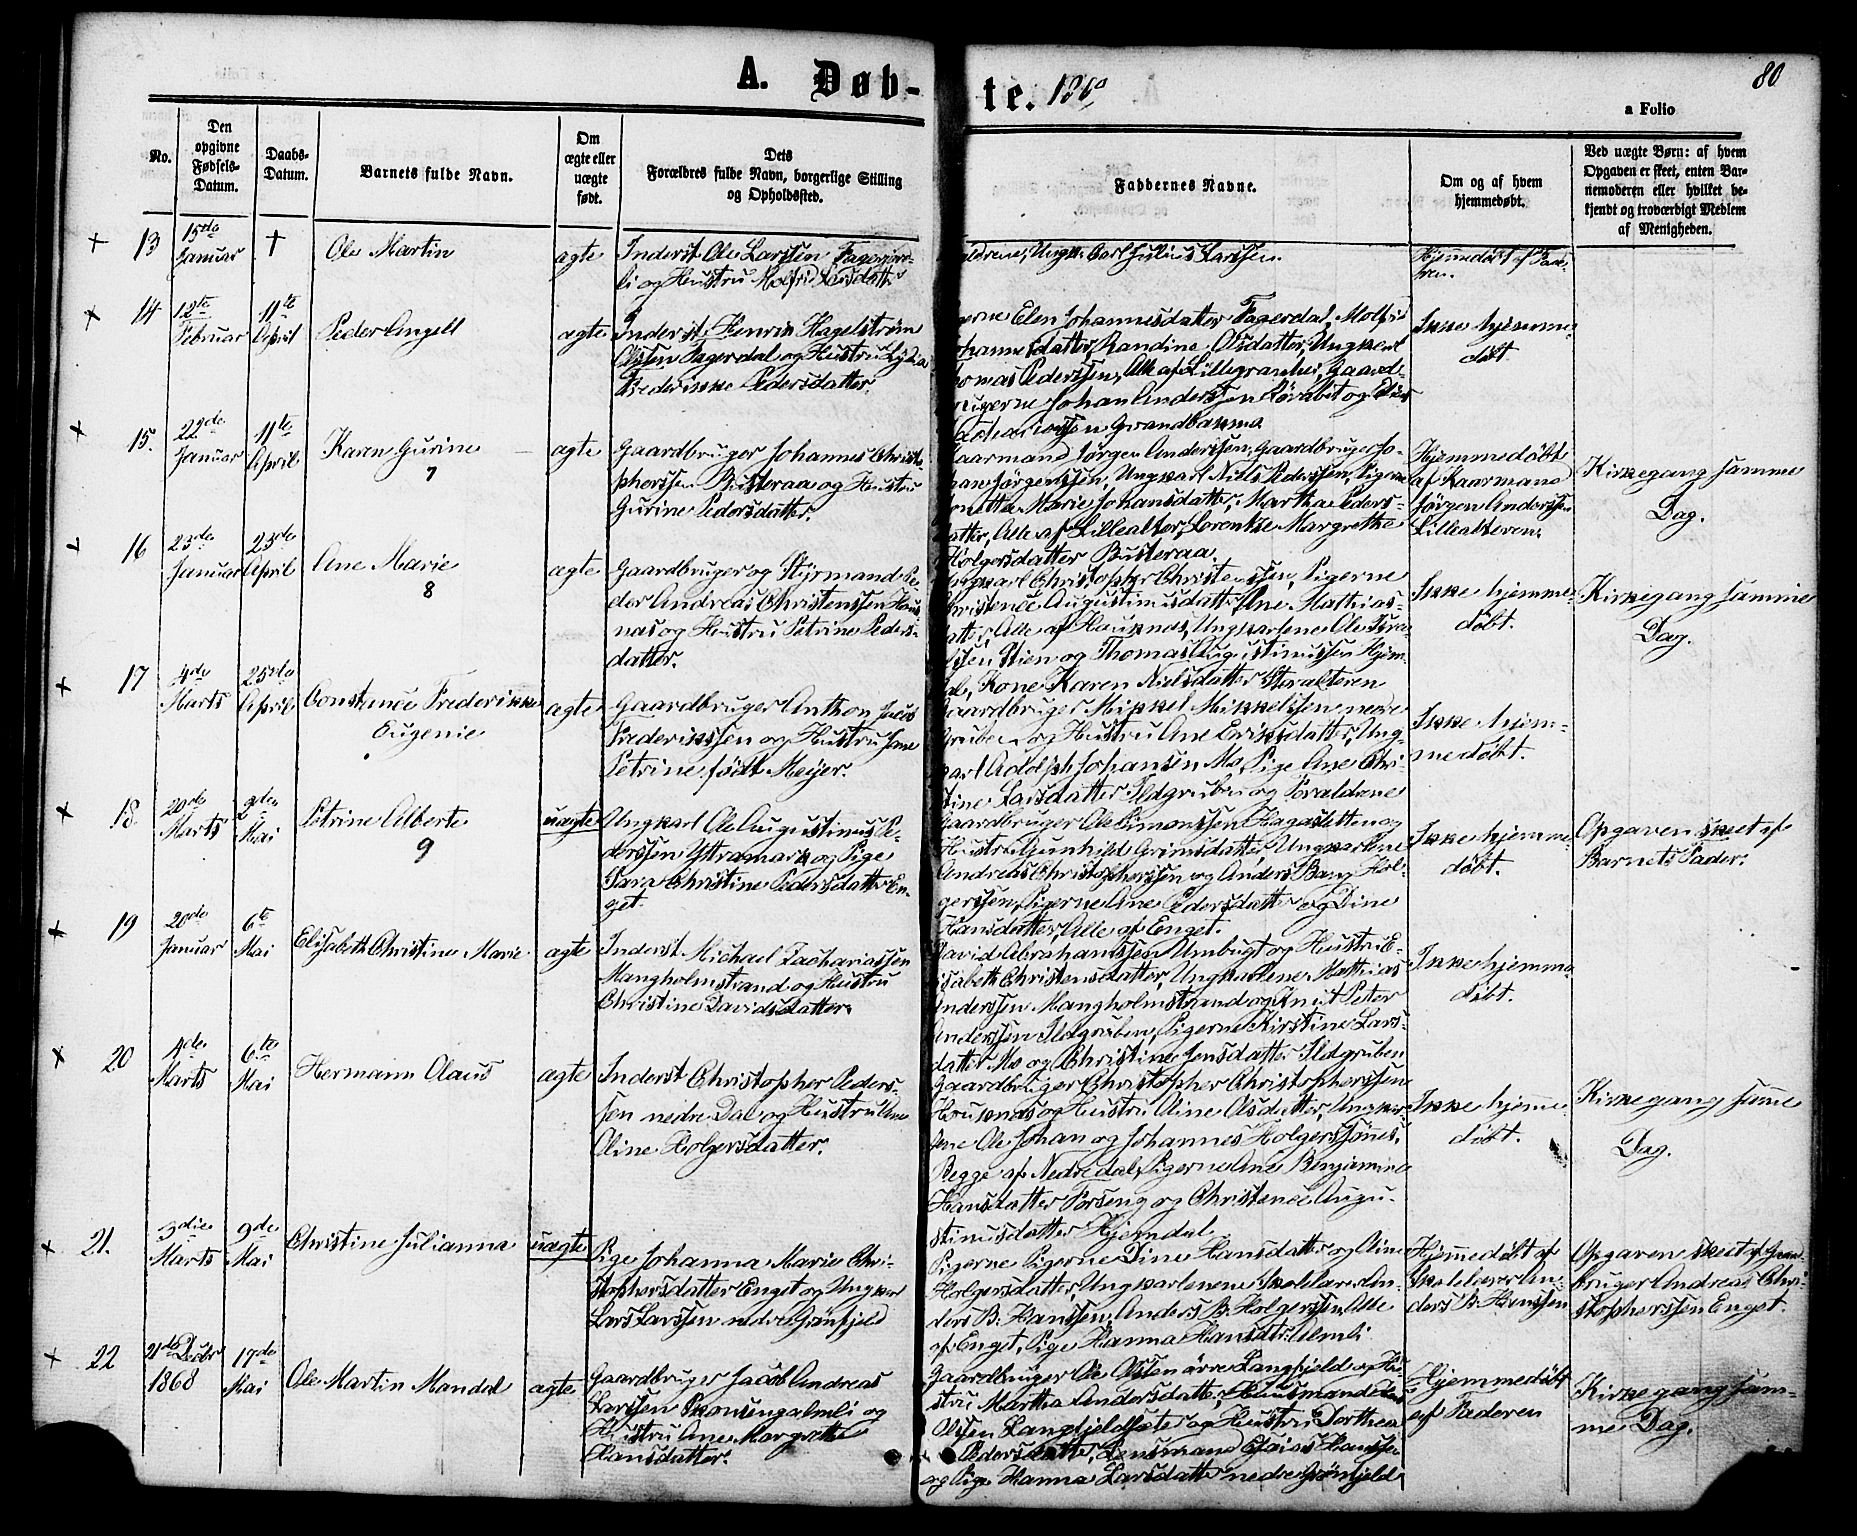 A. Døb-
te. 1869
80
a Folio
No.
Den opgivne Fødsels-Datum.
Daabs-Datum.
Barnets fulde Navn.
Om ægte eller uægte født.
Dets
Forældres fulde Navn, borgerlige Stilling
og Opholdssted.
Faddernes Navne.
Om og af hvem
hjemmedøbt.
Ved uægte Børn: af hvem
Opgaven er skeet, enten Bar-
nemoderen eller hvilket be-
kjendt og troværdigt Medlem
af Menigheden.
13 15de Januar † Ole Martin ægte
Inderst Ole Larssen
li og Hustru Molfrid Larsdatter
ldrene, Ungk. Carl Julius Larssen.
Hjemmedøbt af
14 12te Februar 11te April Peder Angell ægte
Inderst Henrik Hagelstrøm
Olssen Fagerdal og Hustru
Frederikke Pedersdatter.
erne Elen Johannesdatter Fagerdal, Molfrid
ohannesdatter, Randine Olsdatter, Ungkarl
omas Pederssen, Alle af Gaard-
rugerne Johan Anderssen og
Grandbakmo
Ikke hjemme-
døbt
15. 22de Januar 11te April Karen Gurine ægte
7
Gaardbruger Johannes Christo-
pherssen Busteraa og Hustru
Gurine Pedersdatter.
aarmand Jørgen Anderssen, Gaardbruger Jo-
han Jørgenssen, Ungkarl Niels Pederssen, Pigerne
netta Marie Johansdatter, Martha Peders-
datter, Alle af Lillealter, Lorentze Margrethe
Holgersdatter Busteraa.
Hjemmedøbt
af Kaarmand
Jørgen Anderssen
Lillealteren.
Kirkegang samme
Dag.
16 23de Januar 23de April Ane Marie ægte
8
Gaardbruger og Styrmand Pe-
der Andreas Christenssen Hauk-
nas og Hustru Petrine Peders-
datter.
Ungkarl Christopher Christenssen, Pigerne
Christence Augustinusdatter, Ane Mathias-
atter, Alle af Hauknas, Ungkarlene Ole
ssen Stien og Thomas Augustinussen Hjem-
dal, Kone Karen Nielsdatter Storalteren
Ikke hjemme-
døbt.
Kirkegang samme
Dag.
17 4de Marts 25de April Constance Frederikke
Eugenie ægte
Gaardbruger Anthon Jacob
Frederikssen og Hustru Jane
Petrine født Meyer.
Gaardbruger Mikkel Mikkelssen nedre
Gruben og Hustru Ane Eriksdatter, Ung-
karl Adolph Johansen Mo, Pige Ane Chri-
stine Larsdatter Ildgruben og Forældrene
Ikke hjem-
medøbt.
18. 20de Marts 2den Mai Petrine Alberte uægte
9
Ungkarl Ole Augustinus Pe-
derssen Yttramark og Pige
Christine Pedersdatter En-
get.
Gaardbruger Ole Simonssen Hagasletten og
Hustru Gunhild Grimsdatter, Ungkarlene
Andreas Christopherssen og Anders Bang Hol-
gerssen, Pigerne Ane Pedersdatter og Dine
Hansdatter, Alle af Enget.
Ikke hjemme-
døbt.
Opgaven skeet af
Barnets Fader.
19 20de Januar 6te Mai Elisabeth Christine Marie ægte
Inderst Michael Zachariassen
Mangholmstrand og Hustru
Christine Davidsdatter.
David Abrahamssen Umbugt og Hustru E-
lisabeth Christensdatter, Ungkarlene Mathias
Anderssen Mangholmstrand og Knut Peter
Anderssen Ildgruben, Pigerne Kirstine Lars-
datter Mo og Christine Jensdatter Ildgruben
Ikke hjemme-
døbt.
20 4de Marts 6te Mai Hermann Olaus ægte
Inderst Christopher Peders-
sen nedre Dal og Hustru Ane
Oline Holgersdatter.
Gaardbruger Christopher Christopherssen
Hauknas og Hustru Oline Olsdatter, Ungkar-
lene Ole Johan og Johannes Holgerssønner,
Begge af Nedredal, Pigerne Ane Benjamine
Hansdatter Forseng og Christence Augu-
stinusdatter Hjemdal
Ikke hjemme-
døbt.
Kirkegang samme
Dag.
21. 3die Marts 9de Mai Christine Julianna uægte
Pige Johanna Marie Chri-
stophersdatter Enget og Ungkarl
Lars Larssen nedre Grønfjeld
Pigerne Pigerne Dine Hansdatter og Oline
Holgersdatter, Ungkarlenene Skolelærer An-
ders B. Hanssen, Anders B. Holgerssen, Alle
af Enget, Pige Hanna Hansdtr. Almli
Hjemmedøbt af
Skolelærer An-
ders B. Hanssen
Opgaven skeet af Gaard-
bruger Andreas Chri-
stopherssen Enget.
22 21de Decbr 1868 17de Mai Ole Martin Mandal ægte
Gaardbruger Jacob Andreas
Larssen Skonsengalmli og
Hustru Ane Margrethe
Hansdatter.
Gaardbruger Ole Olssen øvre Langfjeld og Hu-
stru Martha Andersdatter, Huusmand
Olssen Langfjeldsæter og Hustru Dorthea
Pedersdatter, Lensmand Esaias Hanssen
og Pige Hanna Larsdatter nedre Grønfjeld
Hjemmedøbt
af Faderen
Kirkegang sam-
me Dag.